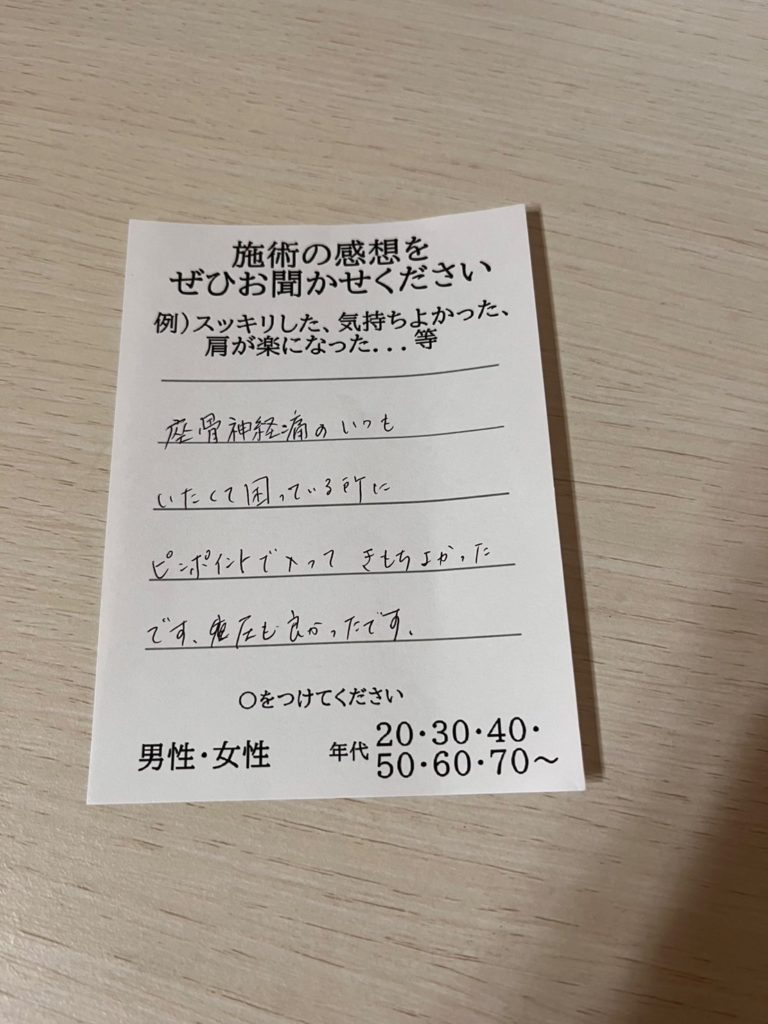 施術の感想を
ぜひお聞かせください
例)スッキリした、気持ちよかった、
肩が楽になった...等
座骨神経痛のいつも
いたくて困っている所に
ピンポイントで入って きもちよかった
です、圧も良かったです.
〇をつけてください
男性・女性
年代 20・30・40・
50・60・70〜